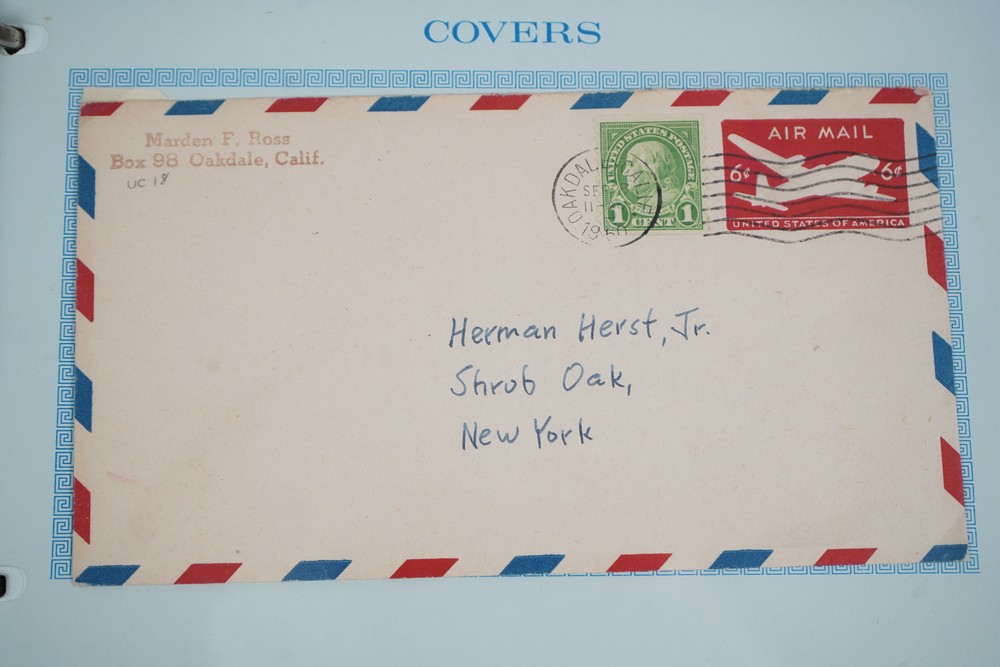 COVERS
Marden F. Ross
Box 98 Oakdale, Calif.
UC 18
UNITED STATES POSTAGE
1 CENT 1
OAKDALE CALIF.
SE
11
1950
AIR MAIL
6¢ 6¢
UNITED STATES OF AMERICA
Herman Herst, Jr.
Shrub Oak,
New York